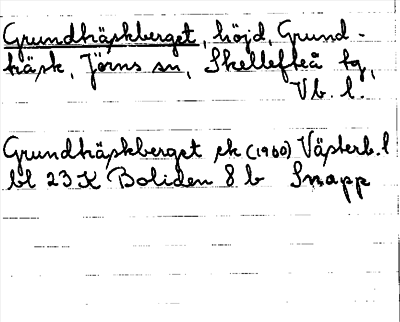 Grundträskberget, höjd, Grund-
träsk, Jörns sn, Skellefteå tg,
Vb. l.
Grundträskberget ek (1900) Västerb. l
bl 23 K Boliden 8 b Snapp